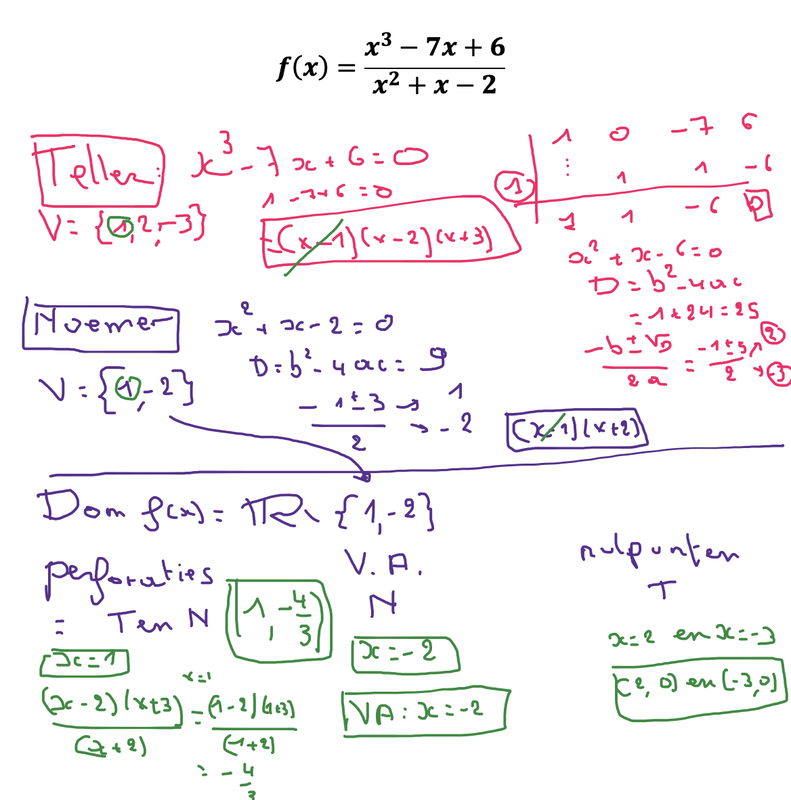 f(x) = (x³ − 7x + 6) / (x² + x − 2)
Teller: x³ - 7x + 6 = 0
1 - 7 + 6 = 0
V = {1, 2, -3}
= (x - 1)(x - 2)(x + 3)
1 0 -7 6
1 ⋮ 1 1 -6
1 1 -6 0
x² + x - 6 = 0
D = b² - 4ac
= 1 + 24 = 25
(-b ± √D) / 2a = (-1 ± 5) / 2 → 2 → -3
Noemer x² + x - 2 = 0
D = b² - 4ac = 9
V = {1, -2}
(- 1 ± 3) / 2 → 1 → -2
(x - 1)(x + 2)
Dom f(x) = ℝ \ {1, -2}
perforaties
= T en N
(1, -4/3)
x = 1
x = 1
(x - 2)(x + 3) / (x + 2) = (1 - 2)(1 + 3) / (1 + 2)
= - 4/3
V.A.
N
x = -2
VA : x = -2
nulpunten
T
x = 2 en x = -3
(2, 0) en (-3, 0)